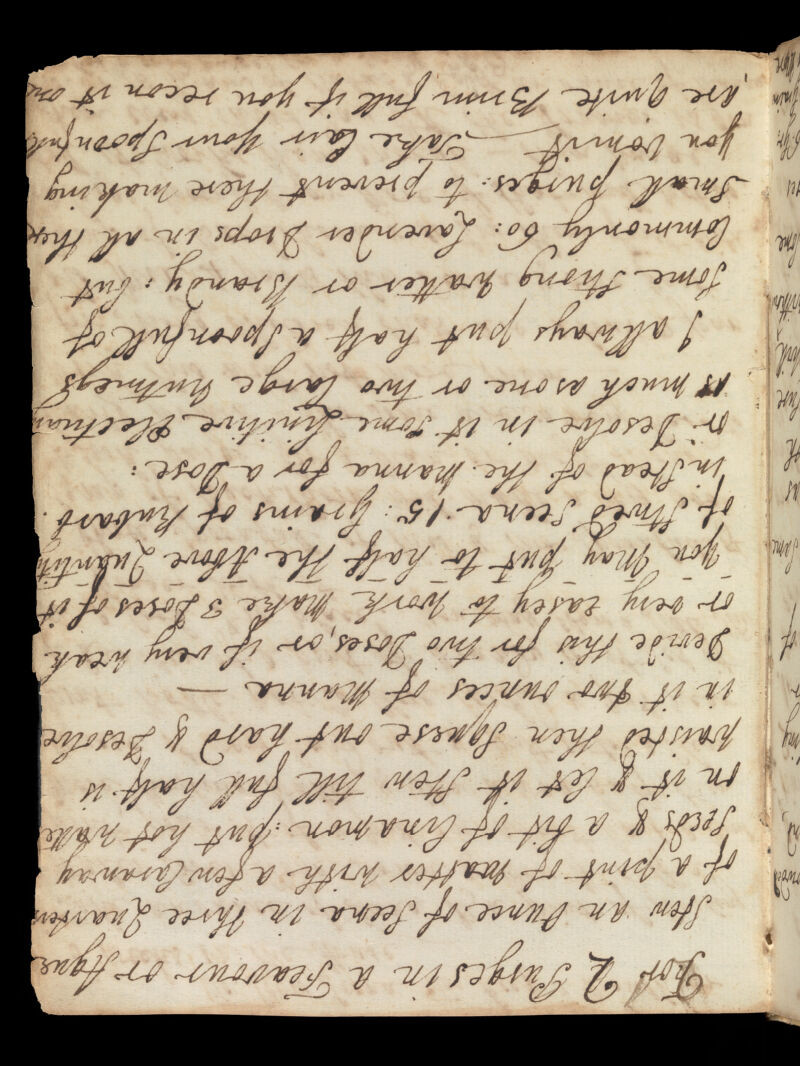 For 2 Purges in a Feavour or Ague
Stew an Ounce of Seena in three Quarters
of a pint of watter with a few Caraway
Seeds & a bit of Cinamon: put hot watter
on it & let it Stew till full half is
waisted then Squese out hard & Desolve
in it two ounces of Manna —
Devide this for two Doses, or if very weak
or very easey to work make 3 Doses of it
You May put to half the Above Quantity
of Stued Seena 15: Grains of Rubard
in Stead of the Manna for a Dose:
or Desolve in it Some Lenitive Electuary
as much as one or two large Nutmegs
I allways put half a Spoonfull of
Some Strong watter or Brandy: but
Commonly 60: Lavender Drops in all these
Small purges: to prevent there making
you Vomit — Take Cair Your Spoonfuls
are Quite Brim full if you recon it on